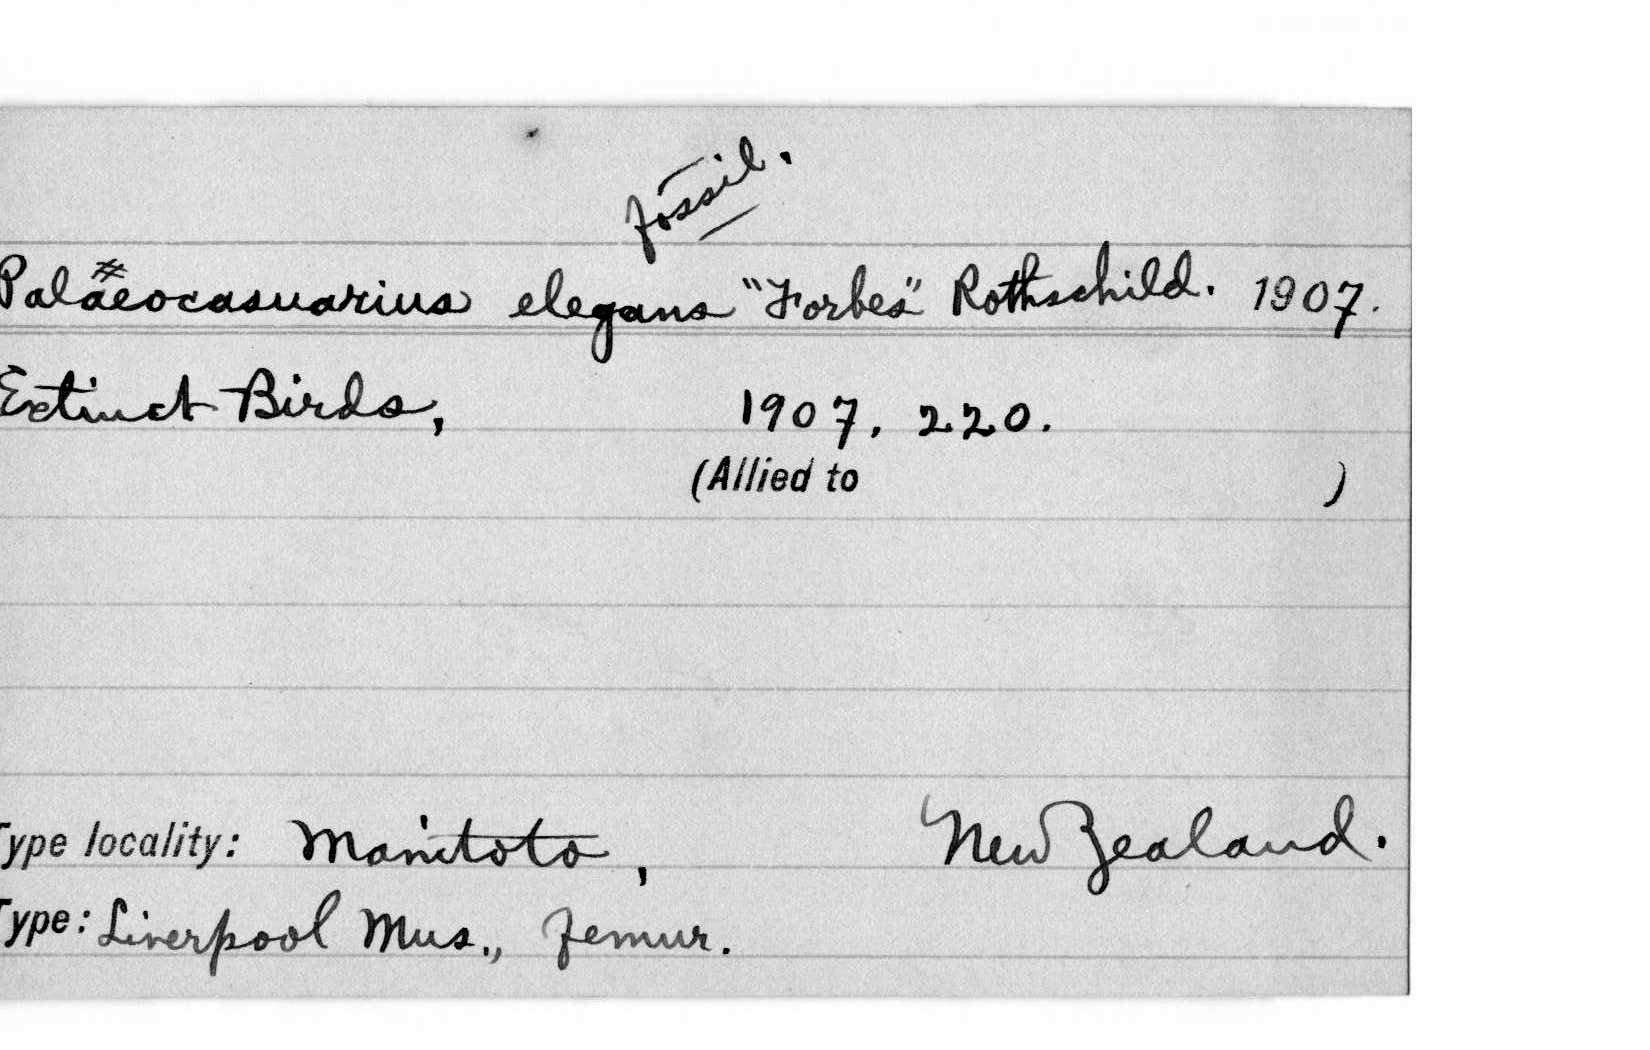 fossil.
#
Palaeocasuarius elegans "Forbes" Rothschild. 1907.
Extinct Birds, 1907, 220.
(Allied to )
Type locality: Manitoto, New Zealand.
Type: Liverpool Mus., femur.